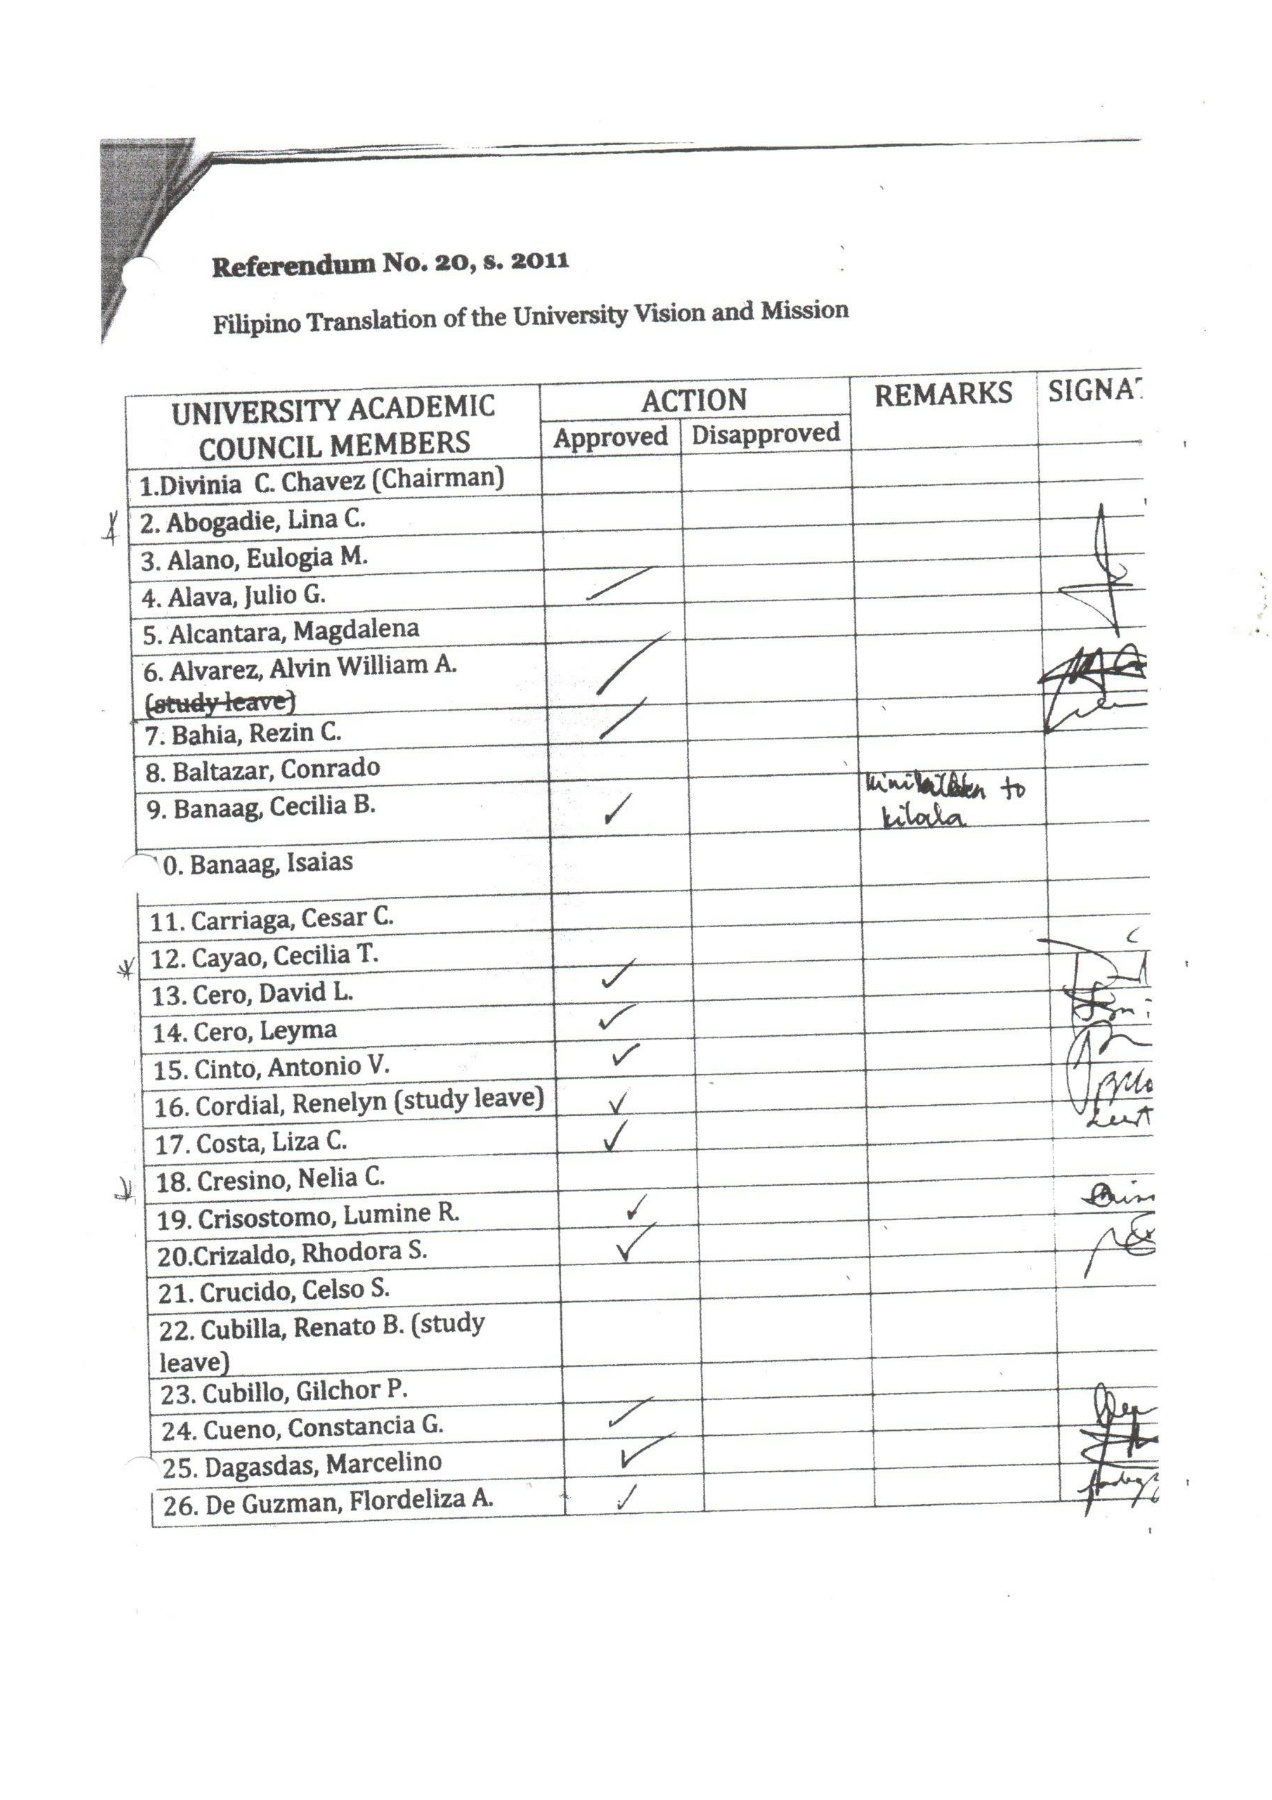 Referendum No. 20, s. 2011
Filipino Translation of the University Vision and Mission
UNIVERSITY ACADEMIC COUNCIL MEMBERS ACTION REMARKS SIGNAT
Approved Disapproved
1.Divinia C. Chavez (Chairman)
2. Abogadie, Lina C.
3. Alano, Eulogia M.
4. Alava, Julio G.
5. Alcantara, Magdalena
6. Alvarez, Alvin William A.
(study leave)
7. Bahia, Rezin C.
8. Baltazar, Conrado
9. Banaag, Cecilia B. ✓ to
kilala
0. Banaag, Isaias
11. Carriaga, Cesar C.
12. Cayao, Cecilia T.
13. Cero, David L. ✓
14. Cero, Leyma ✓
15. Cinto, Antonio V. ✓
16. Cordial, Renelyn (study leave) ✓
17. Costa, Liza C. ✓
18. Cresino, Nelia C.
19. Crisostomo, Lumine R. ✓
20.Crizaldo, Rhodora S. ✓
21. Crucido, Celso S.
22. Cubilla, Renato B. (study
leave)
23. Cubillo, Gilchor P.
24. Cueno, Constancia G. ✓
25. Dagasdas, Marcelino ✓
26. De Guzman, Flordeliza A. ✓